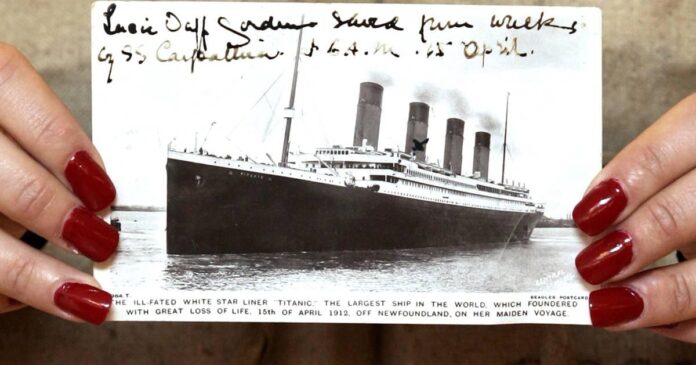 Lucie Duff Gordon saved from wreck
by SS Carpathia. A.M. 15 April.
THE ILL-FATED WHITE STAR LINER "TITANIC." THE LARGEST SHIP IN THE WORLD, WHICH FOUNDERED
WITH GREAT LOSS OF LIFE, 15th OF APRIL 1912, OFF NEWFOUNDLAND, ON HER MAIDEN VOYAGE.
BEAGLES POSTCARD